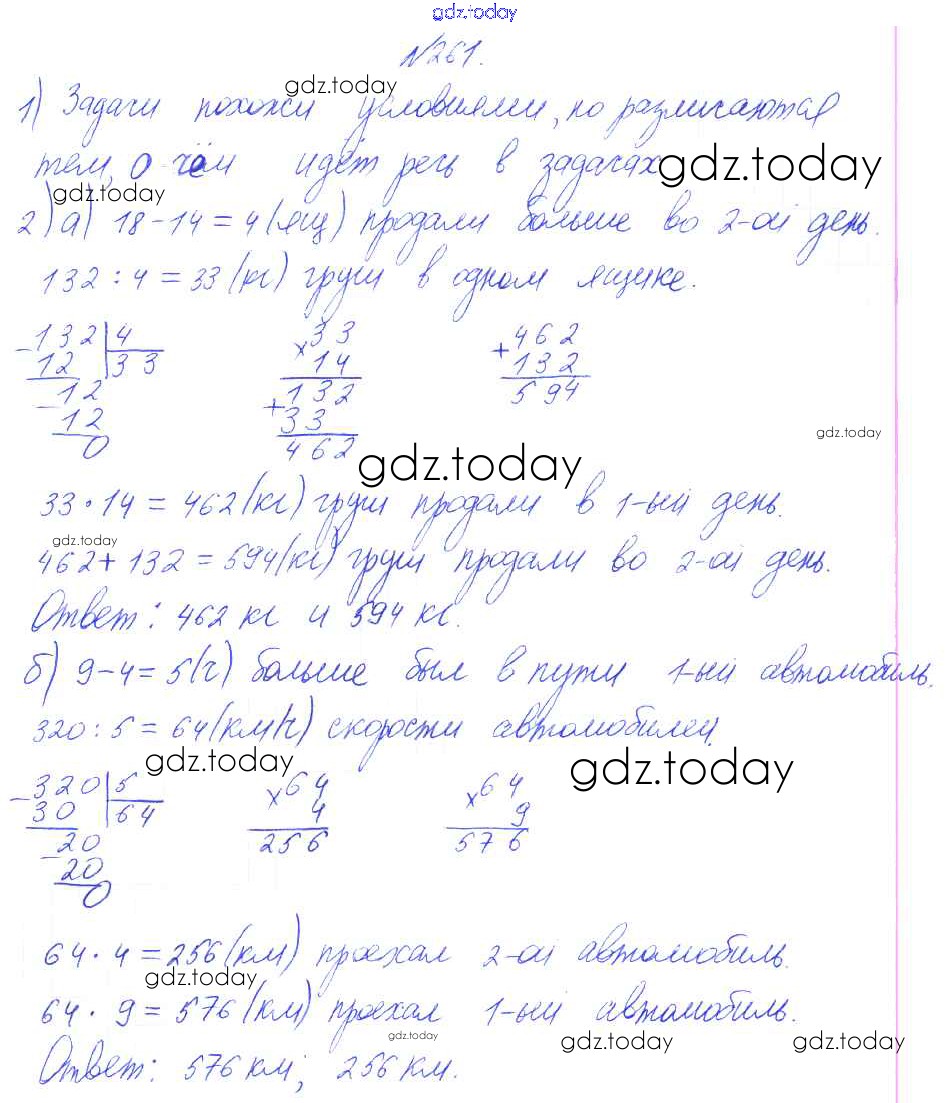 gdz.today
№261.
gdz.today
1) Задачи похожи условиями, но различаются
тем, о чём идёт речь в задачах
gdz.today
gdz.today
2) а) 18-14=4(ящ) продали больше во 2-ой день.
132:4=33(кг) груш в одном ящике.
-132|4 ×33 +462
12 |33 14 132
-12 132 594
12 +33
0 462
gdz.today
gdz.today
33·14=462(кг) груш продали в 1-ый день.
gdz.today
462+132=594(кг) груш продали во 2-ой день.
Ответ: 462 кг и 594 кг.
б) 9-4=5(ч) больше был в пути 1-ый автомобиль.
320:5=64(км/ч) скорости автомобилей.
gdz.today
gdz.today
-320|5 ×64 ×64
30 |64 4 9
-20 256 576
20
0
64·4=256(км) проехал 2-ой автомобиль.
gdz.today
64·9=576(км) проехал 1-ый автомобиль.
gdz.today
gdz.today
gdz.today
Ответ: 576 км; 256 км.